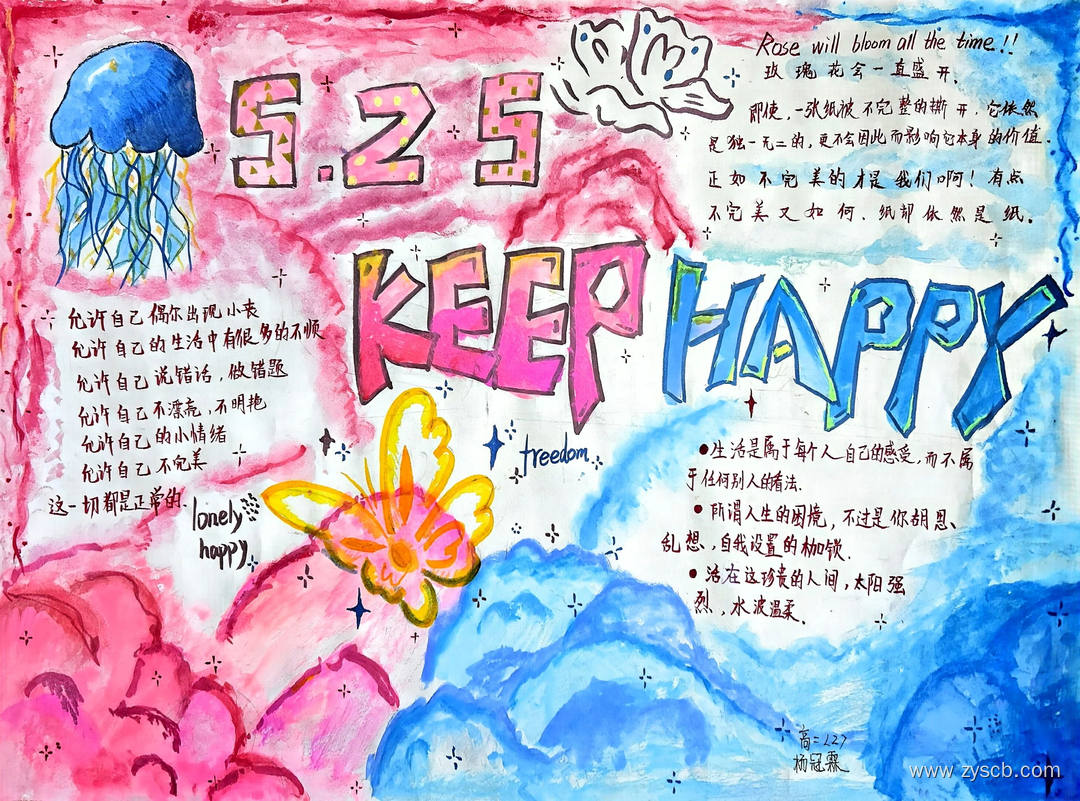 5.25
Rose will bloom all the time!!
玫瑰花会一直盛开.
即使,一张纸被不完整的撕开,它依然
是独一无二的,更不会因此而影响它本身的价值.
正如不完美的才是我们啊!有点
不完美又如何,纸却依然是纸.
KEEP HAPPY
允许自己偶尔出现小丧
允许自己的生活中有很多的不顺
允许自己说错话,做错题
允许自己不漂亮,不明艳
允许自己的小情绪
允许自己不完美
这一切都是正常的.
lonely
happy
freedom
•生活是属于每个人自己的感受,而不属
于任何别人的看法.
•所谓人生的困境,不过是你胡思、
乱想,自我设置的枷锁.
•活在这珍贵的人间,太阳强
烈,水波温柔.
高二.27
杨冠霖
www.zyscb.com